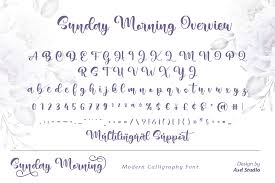 Sunday Morning Overview
A B C D E F G H I J K L M N O P Q
R S T U V W X Y Z
a b c d e f g h i j k l m n o p q r s t u v w x y z
0 1 2 3 4 5 6 7 8 9
Multilingual Support
Sunday Morning
Modern Calligraphy Font
Design by